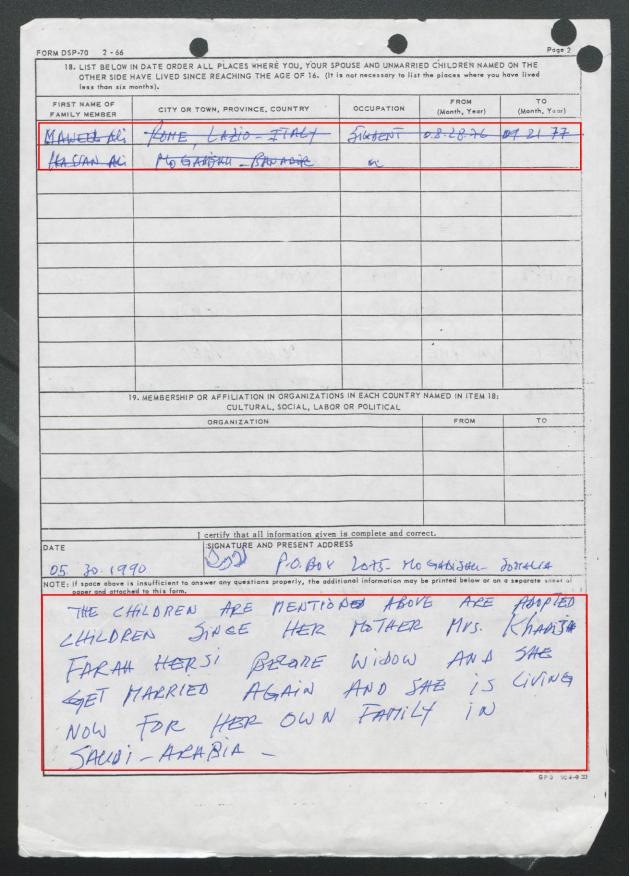 FORM DSP-70 2-66
Page 2
18. LIST BELOW IN DATE ORDER ALL PLACES WHERE YOU, YOUR SPOUSE AND UNMARRIED CHILDREN NAMED ON THE
OTHER SIDE HAVE LIVED SINCE REACHING THE AGE OF 16. (It is not necessary to list the places where you have lived
less than six months).
FIRST NAME OF FAMILY MEMBER CITY OR TOWN, PROVINCE, COUNTRY OCCUPATION FROM (Month, Year) TO (Month, Year)
Ali ROME, LAZIO - ITALY STUDENT 08-28-76 09 21 77
HASSAN Ali MOGADISHU - BANADIR
19. MEMBERSHIP OR AFFILIATION IN ORGANIZATIONS IN EACH COUNTRY NAMED IN ITEM 18:
CULTURAL, SOCIAL, LABOR OR POLITICAL
ORGANIZATION FROM TO
I certify that all information given is complete and correct.
DATE SIGNATURE AND PRESENT ADDRESS
05 30.1990 P.O.BOX MOGADISHU - SOMALIA
NOTE: If space above is insufficient to answer any questions properly, the additional information may be printed below or on a separate sheet of
paper and attached to this form.
THE CHILDREN ARE MENTIONED ABOVE ARE ADOPTED
CHILDREN SINCE HER MOTHER Mrs. KhADIJA
FARAH HERSI BEFORE WIDOW AND SHE
GET MARRIED AGAIN AND SHE IS LIVING
NOW FOR HER OWN FAMILY IN
SAUDI - ARABIA -